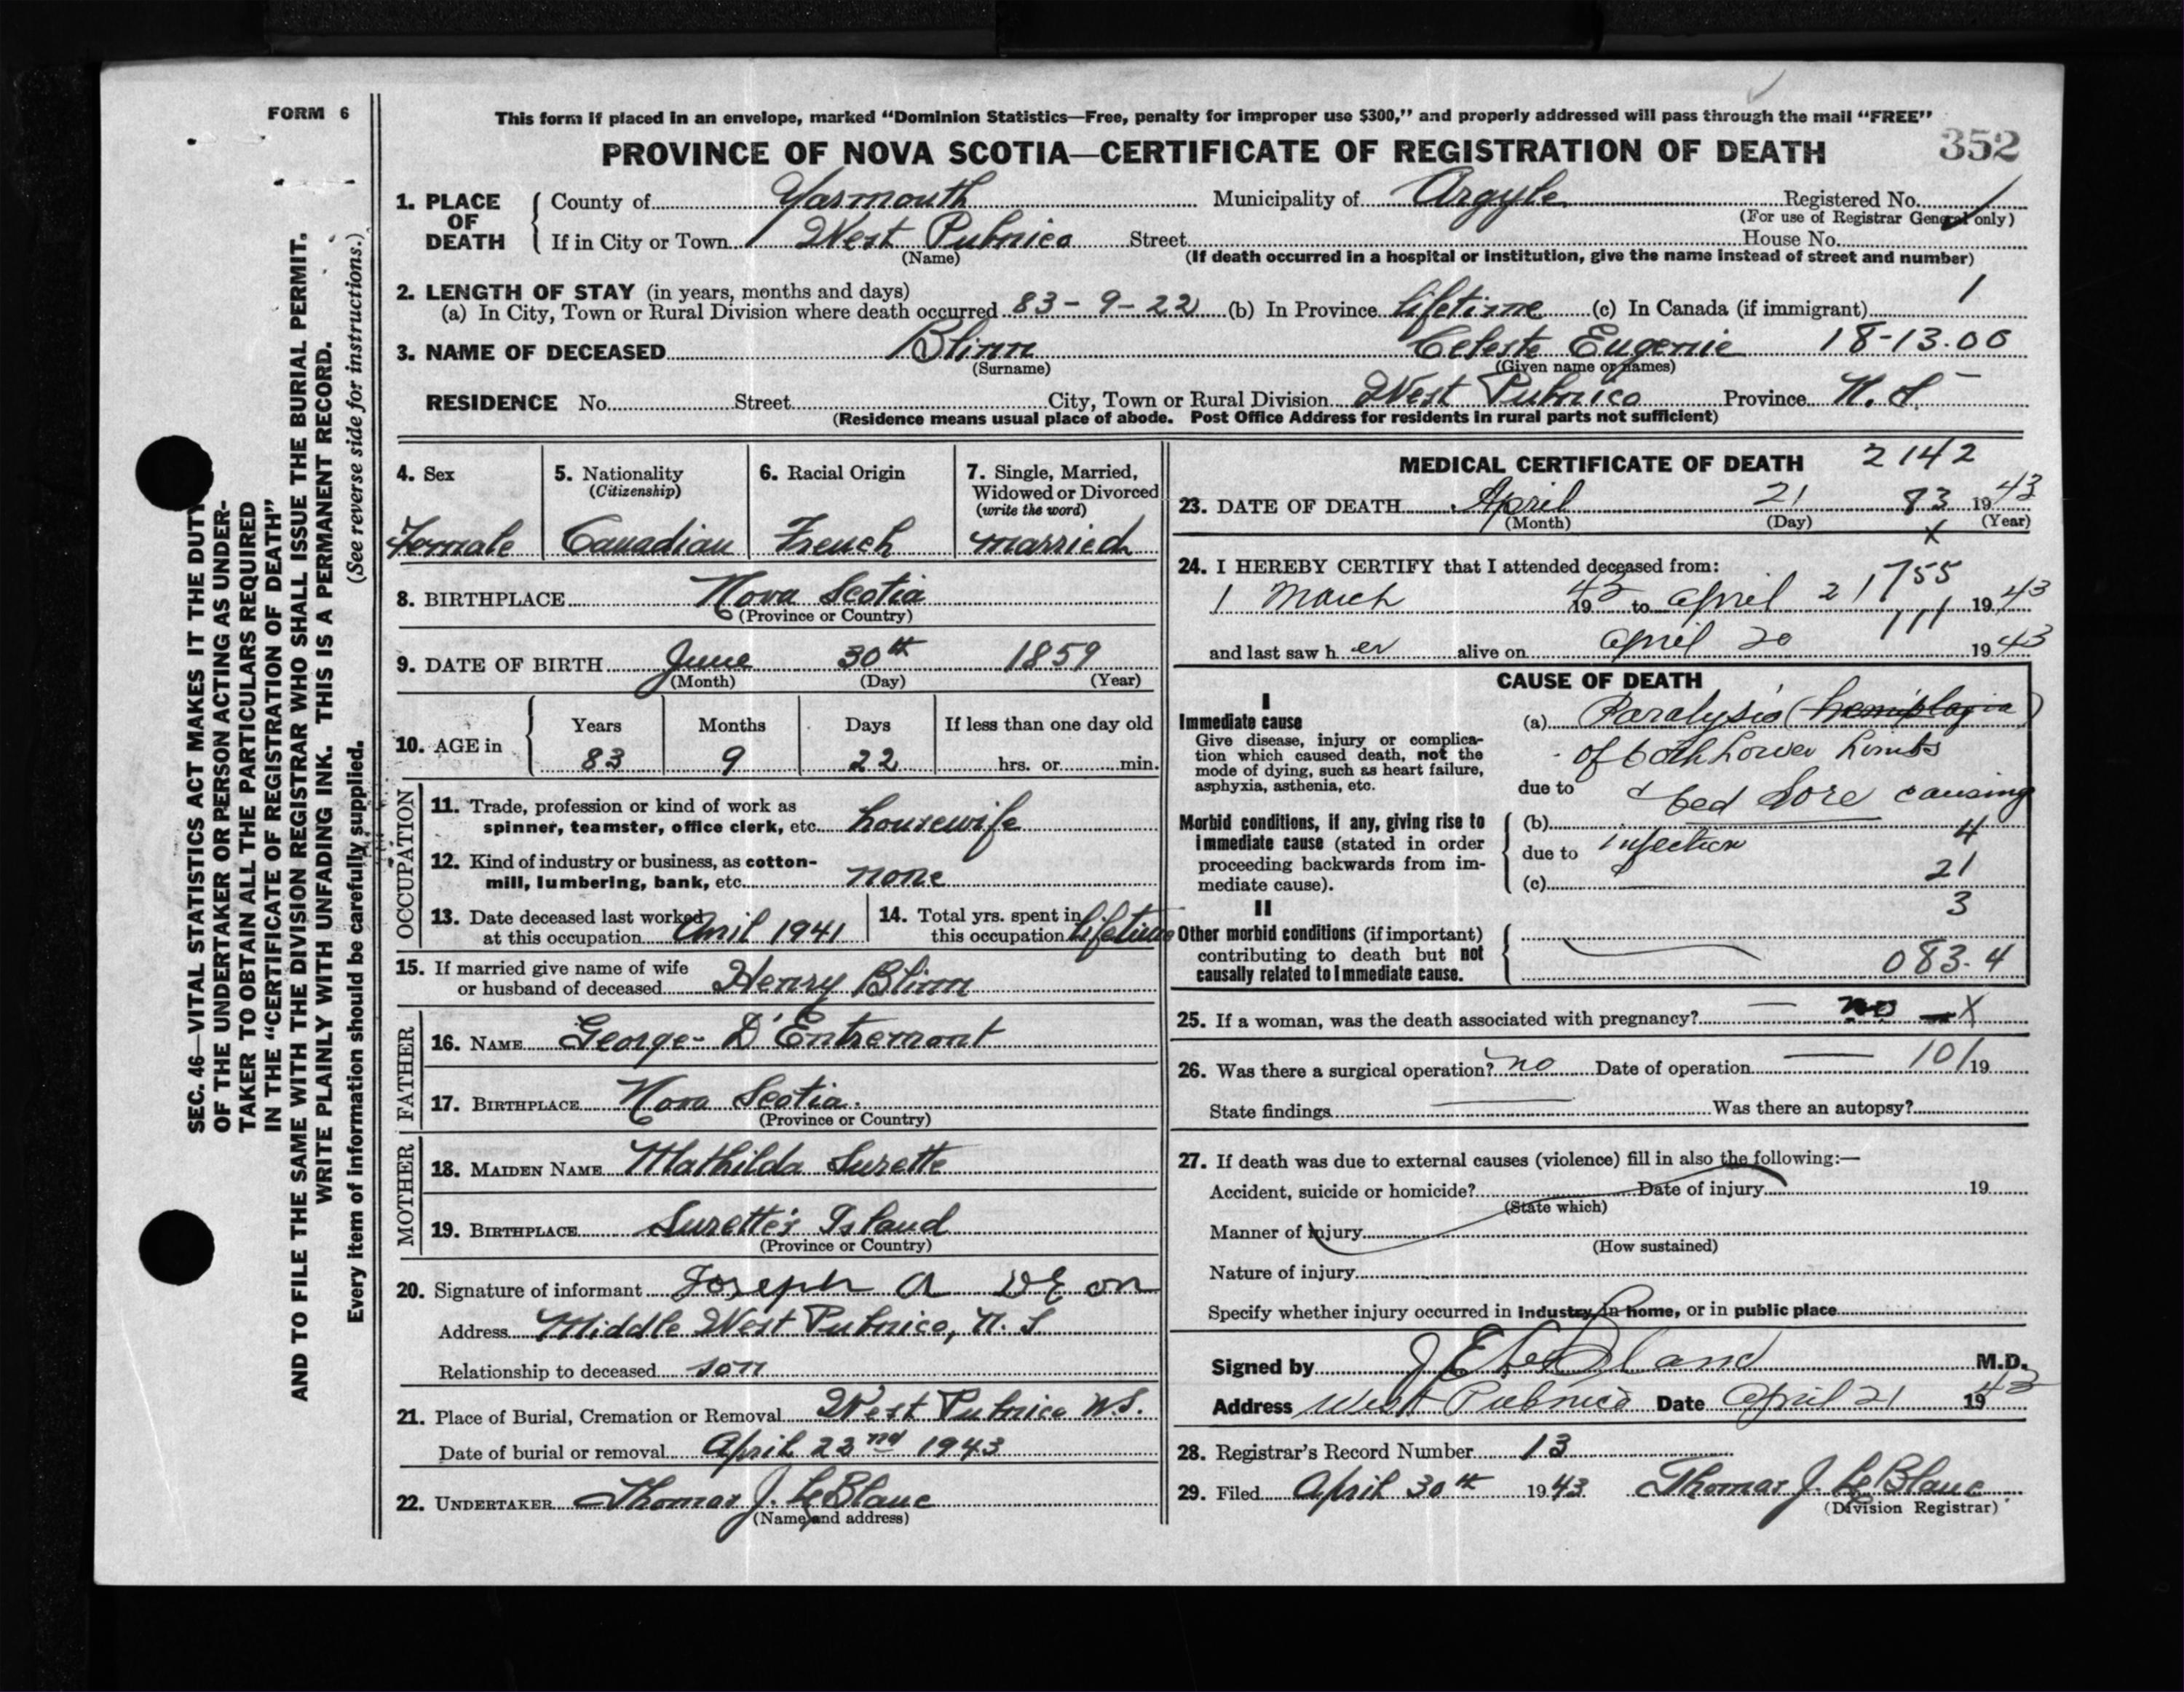 FORM 6
This form if placed in an envelope, marked “Dominion Statistics—Free, penalty for improper use $300,” and properly addressed will pass through the mail “FREE”
PROVINCE OF NOVA SCOTIA—CERTIFICATE OF REGISTRATION OF DEATH 352
1. PLACE OF DEATH County of Yarmouth Municipality of Argyle Registered No.
(For use of Registrar General only)
If in City or Town West Pubnico Street House No.
(Name) (If death occurred in a hospital or institution, give the name instead of street and number)
2. LENGTH OF STAY (in years, months and days) 1
(a) In City, Town or Rural Division where death occurred 83-9-22 (b) In Province lifetime (c) In Canada (if immigrant)
3. NAME OF DECEASED Blinn Celeste Eugenie 18-13.00
(Surname) (Given name or names)
RESIDENCE No. Street City, Town or Rural Division West Pubnico Province N.S.
(Residence means usual place of abode. Post Office Address for residents in rural parts not sufficient)
4. Sex
Female
5. Nationality
(Citizenship)
Canadian
6. Racial Origin
French
7. Single, Married,
Widowed or Divorced
(write the word)
married
8. BIRTHPLACE Nova Scotia
(Province or Country)
9. DATE OF BIRTH June 30th 1859
(Month) (Day) (Year)
10. AGE in
Years Months Days If less than one day old
83 9 22 hrs. or min.
OCCUPATION
11. Trade, profession or kind of work as
spinner, teamster, office clerk, etc. housewife
12. Kind of industry or business, as cotton-
mill, lumbering, bank, etc. none
13. Date deceased last worked
at this occupation April 1941
14. Total yrs. spent in
this occupation lifetime
15. If married give name of wife
or husband of deceased Henry Blinn
FATHER
16. NAME George D'Entremont
17. BIRTHPLACE Nova Scotia.
(Province or Country)
MOTHER
18. MAIDEN NAME Mathilda Surette
19. BIRTHPLACE Surette's Island
(Province or Country)
20. Signature of informant Joseph A D'Eon
Address Middle West Pubnico, N.S
Relationship to deceased son
21. Place of Burial, Cremation or Removal West Pubnico N.S.
Date of burial or removal April 23nd 1943
22. UNDERTAKER Thomas J. LeBlanc
(Name and address)
MEDICAL CERTIFICATE OF DEATH 2142
23. DATE OF DEATH April 21 83 1943
(Month) (Day) x (Year)
24. I HEREBY CERTIFY that I attended deceased from:
1 March 1943 to April 21 755 1943
and last saw her alive on April 20 111 1943
CAUSE OF DEATH
I
Immediate cause
Give disease, injury or complica-
tion which caused death, not the
mode of dying, such as heart failure,
asphyxia, asthenia, etc.
(a) Paralysis (hemiplagia)
of both Lower Limbs
due to & bed Sore causing
Morbid conditions, if any, giving rise to
immediate cause (stated in order
proceeding backwards from im-
mediate cause).
(b) 4
due to infection
(c) 21
3
II
Other morbid conditions (if important)
contributing to death but not
causally related to immediate cause.
083.4
25. If a woman, was the death associated with pregnancy? no X
26. Was there a surgical operation? no Date of operation 101 19
State findings Was there an autopsy?
27. If death was due to external causes (violence) fill in also the following:—
Accident, suicide or homicide? Date of injury 19
(State which)
Manner of injury
(How sustained)
Nature of injury
Specify whether injury occurred in industry, in home, or in public place
Signed by J E LeBland M.D.
Address West Pubnico Date April 21 1943
28. Registrar's Record Number 13
29. Filed April 30th 1943 Thomas J. LeBlanc.
(Division Registrar)
SEC. 46—VITAL STATISTICS ACT MAKES IT THE DUTY
OF THE UNDERTAKER OR PERSON ACTING AS UNDER-
TAKER TO OBTAIN ALL THE PARTICULARS REQUIRED
IN THE “CERTIFICATE OF REGISTRATION OF DEATH”
AND TO FILE THE SAME WITH THE DIVISION REGISTRAR WHO SHALL ISSUE THE BURIAL PERMIT.
WRITE PLAINLY WITH UNFADING INK. THIS IS A PERMANENT RECORD.
Every item of information should be carefully supplied. (See reverse side for instructions.)